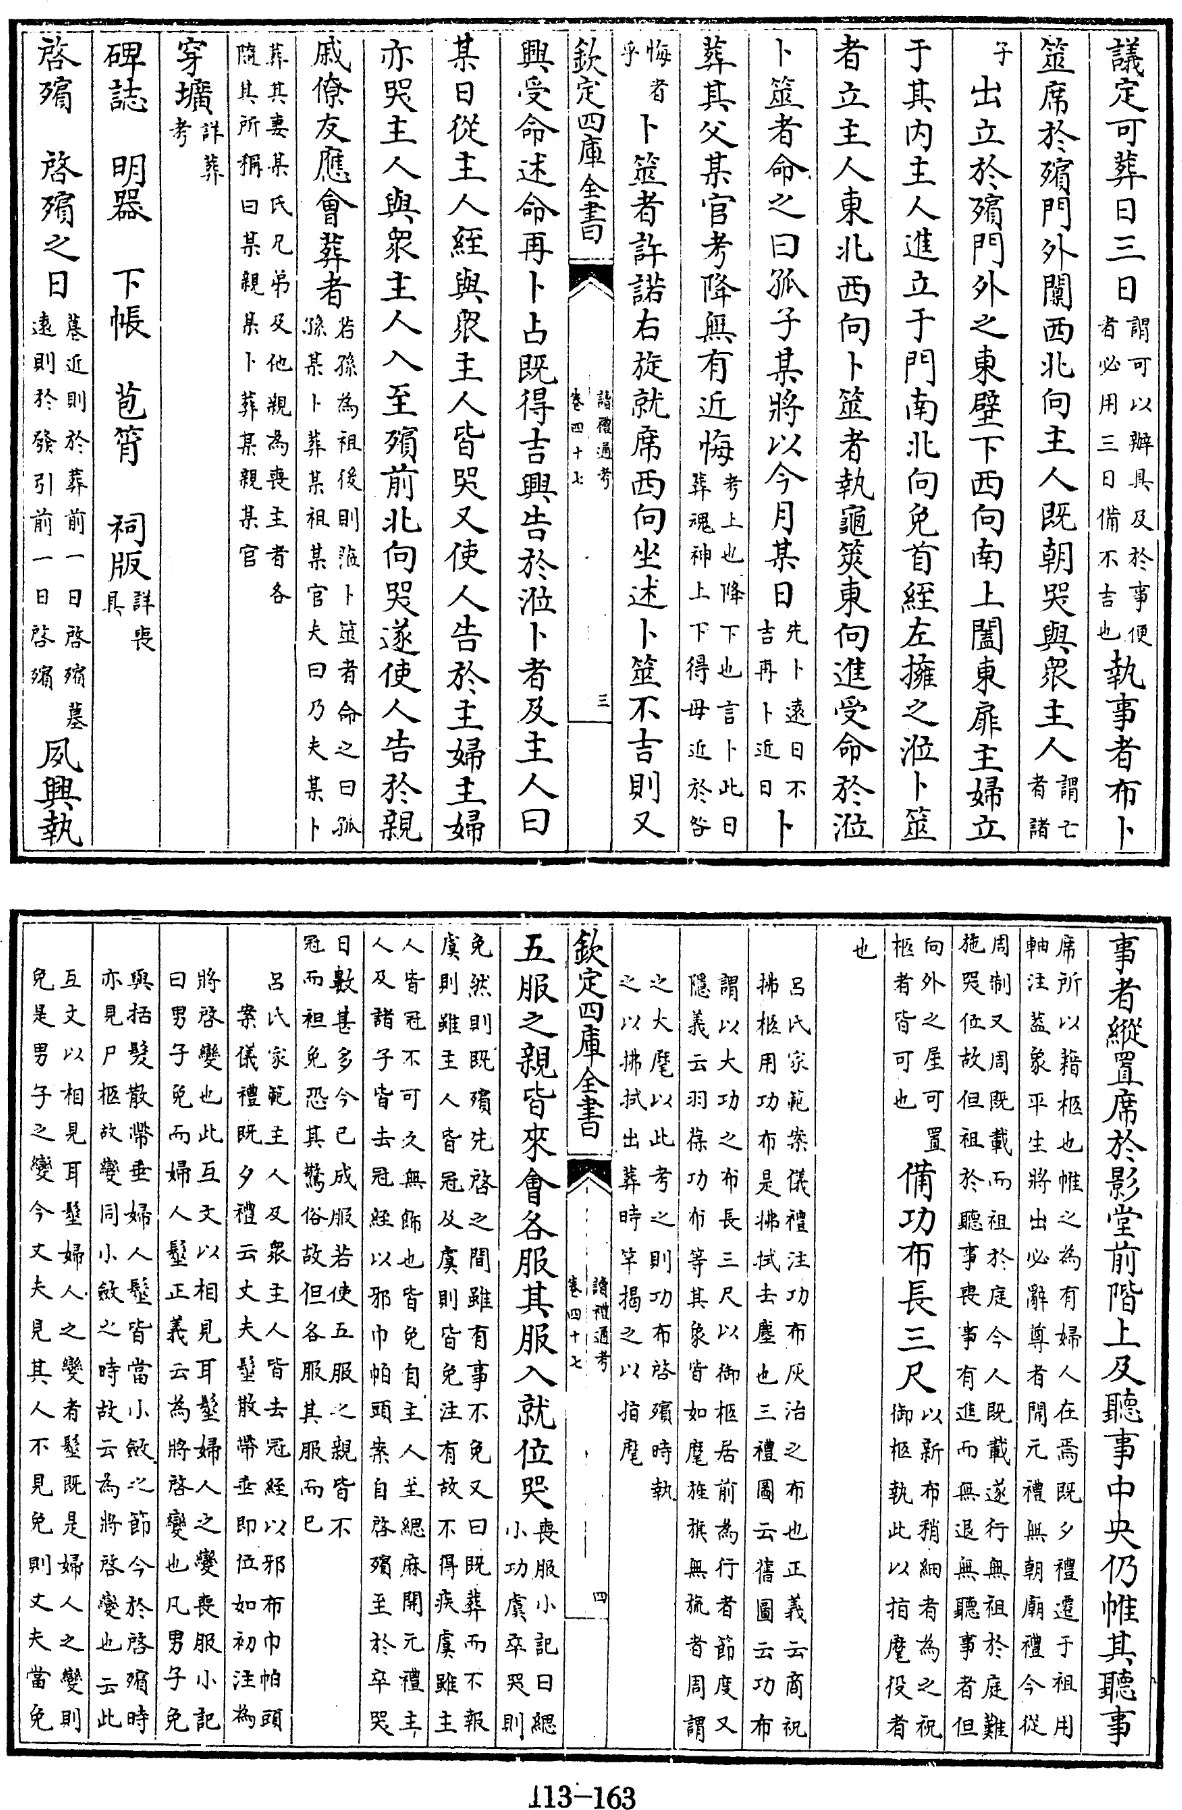 議定可葬日三日謂可以辦具及於事便者必用三日備不吉也執事者布卜
筮席於殯門外闑西北向主人既朝哭與衆主人謂亡者諸
子出立於殯門外之東壁下西向南上闔東扉主婦立
于其内主人進立于門南北向免首絰左擁之涖卜筮
者立主人東北西向卜筮者執龜筴東向進受命於涖
卜筮者命之曰孤子某將以今月某日先卜遠日不吉再卜近日卜
葬其父某官考降無有近悔考上也降下也言卜此日葬魂神上下得毋近於咎
悔者乎卜筮者許諾右旋就席西向坐述卜筮不吉則又
欽定四庫全書
讀禮通考
卷四十七
三
興受命述命再卜占既得吉興告於涖卜者及主人曰
某日從主人絰與衆主人皆哭又使人告於主婦主婦
亦哭主人與衆主人入至殯前北向哭遂使人告於親
戚僚友應會葬者若孫為祖後則涖卜筮者命之曰孤孫某卜葬某祖某官夫曰乃夫某卜
葬其妻某氏兄弟及他親為喪主者各隨其所稱曰某親某卜葬某親某官
穿壙詳葬考
碑誌 明器 下帳 苞筲 祠版詳喪具
啓殯 啓殯之日墓近則於葬前一日啓殯墓遠則於發引前一日啓殯夙興執
事者縱置席於影堂前階上及聽事中央仍帷其聽事
席所以藉柩也帷之為有婦人在焉既夕禮遷于祖用軸注蓋象平生將出必辭尊者開元禮無朝廟禮今從
周制又周既載而祖於庭今人既載遂行無祖於庭難施哭位故但祖於聽事喪事有進而無退無聽事者但
向外之屋可置柩者皆可也備功布長三尺以新布稍細者為之祝御柩執此以指麾役者
也
吕氏家範案儀禮注功布灰治之布也正義云商祝拂柩用功布是拂拭去塵也三禮圖云舊圖云功布
謂以大功之布長三尺以御柩居前為行者節度又隱義云羽葆功布等其象皆如麾旌旗無旒者周謂
之大麾以此考之則功布啓殯時執之以拂拭出葬時竿揭之以指麾
欽定四庫全書
讀禮通考
卷四十七
四
五服之親皆來會各服其服入就位哭喪服小記曰緦小功虞卒哭則
免然則既殯先啓之間雖有事不免又曰既葬而不報虞則雖主人皆冠及虞則皆免注有故不得疾虞雖主
人皆冠不可久無飾也皆免自主人至緦麻開元禮主人及諸子皆去冠絰以邪巾帕頭案自啓殯至於卒哭
日數甚多今已成服若使五服之親皆不冠而袒免恐其驚俗故但各服其服而已
吕氏家範主人及衆主人皆去冠絰以邪布巾帕頭案儀禮既夕禮云丈夫髽散帶垂即位如初注為
將啓變也此互文以相見耳髽婦人之變喪服小記曰男子免而婦人髽正義云為將啓變也凡男子免
與括髮散帶垂婦人髽皆當小斂之節今於啓殯時亦見尸柩故變同小斂之時故云為將啓變也云此
互文以相見耳髽婦人之變者髽既是婦人之變則免是男子之變今丈夫見其人不見免則丈夫當免
113-163